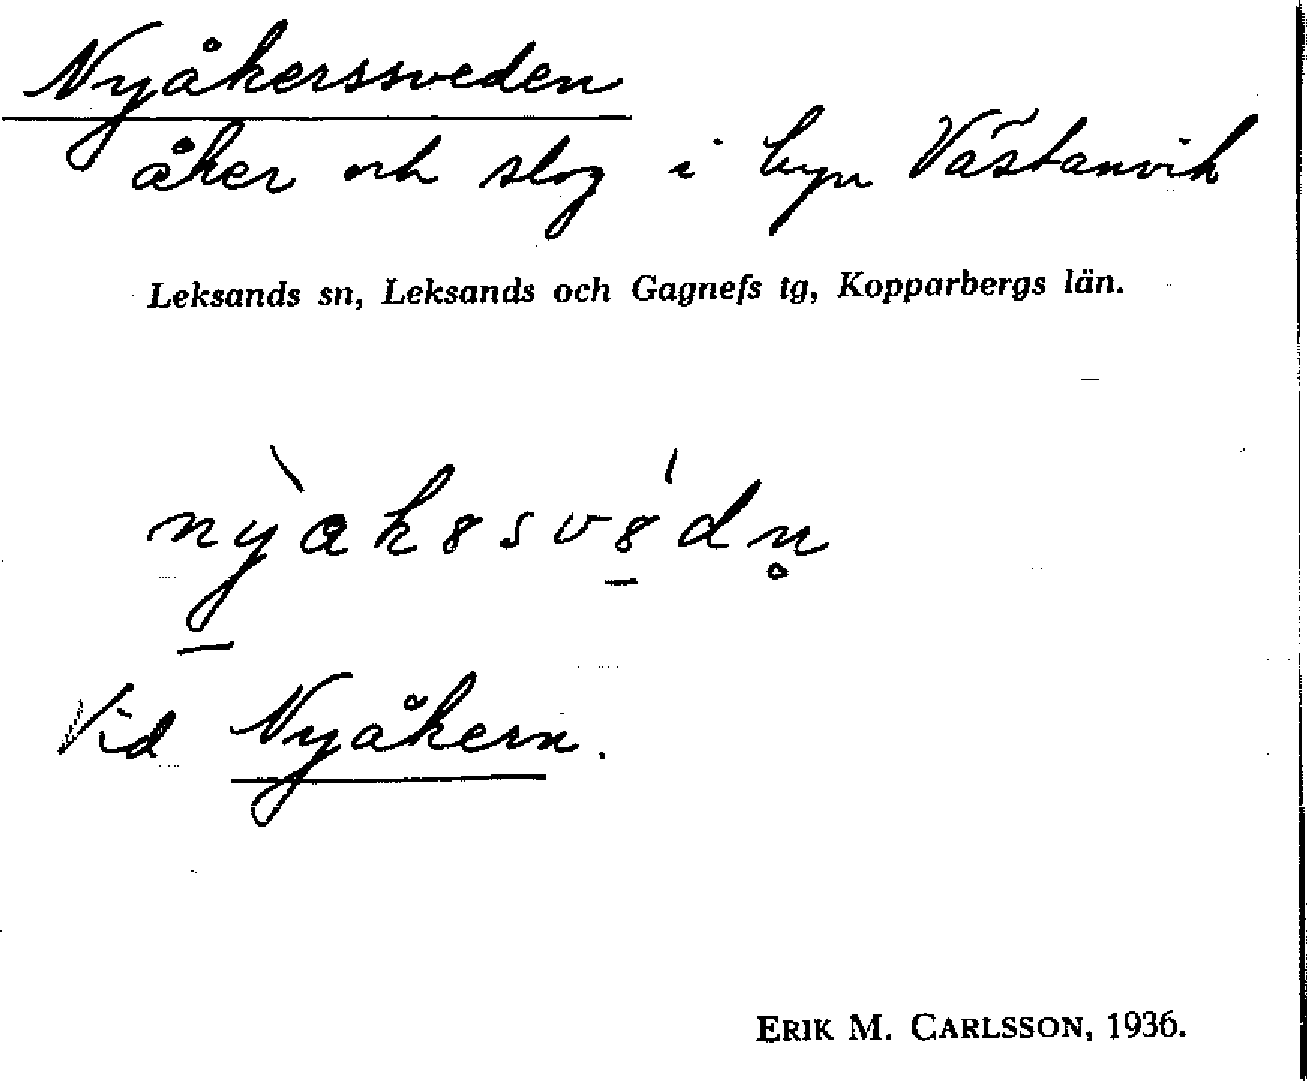 Nyåkerssveden
åker och slog i byn Västanvik
Leksands sn, Leksands och Gagnefs tg, Kopparbergs län.
Vid Nyåkern.
ERIK M. CARLSSON, 1936.